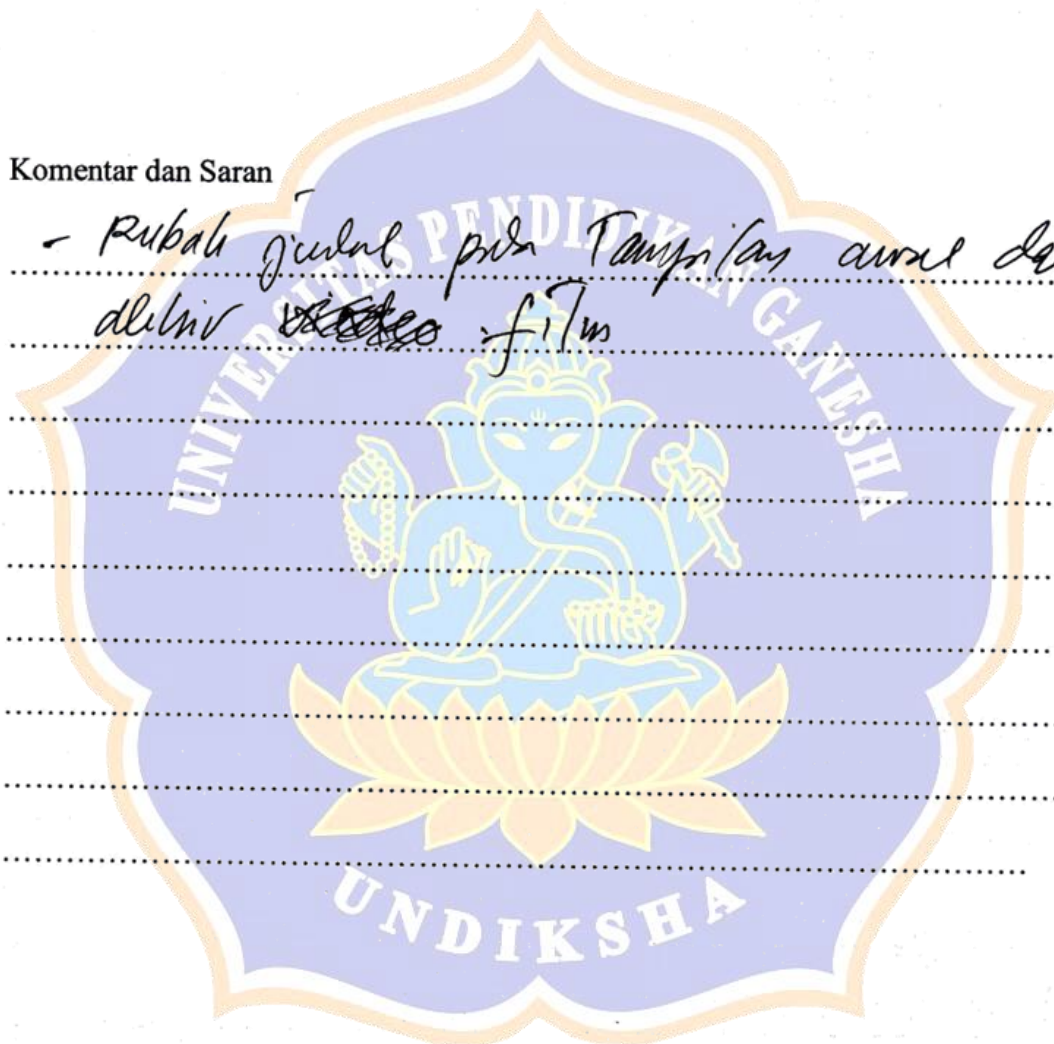 Komentar dan Saran
- Rubah judul pada Tampilan awal da
akhir film
UNIVERSITAS PENDIDIKAN GANESHA
UNDIKSHA